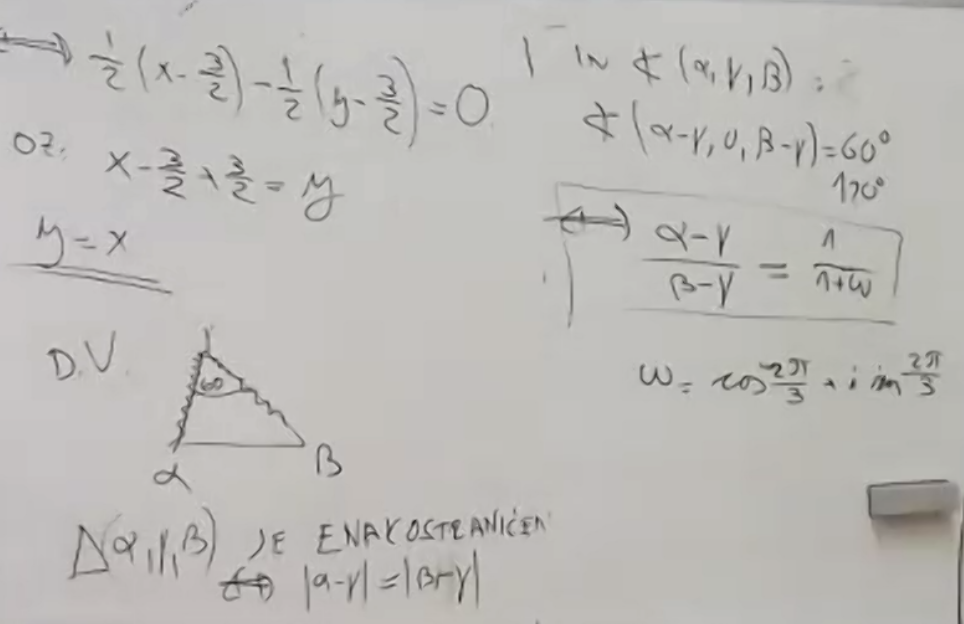 ⟺ 1/2 (x - 3/2) - 1/2 (y - 3/2) = 0
oz. x - 3/2 + 3/2 = y
y = x
D.V.
γ
60
α β
Δ(α, γ, β) JE ENAKOSTRANIČEN
⟺ |α-γ| = |β-γ|
IN ∢(α, γ, β) =
∢(α-γ, 0, β-γ) = 60°
⟺ (α-γ)/(β-γ) = 1/(1+ω)
ω = cos 2π/3 + i sin 2π/3